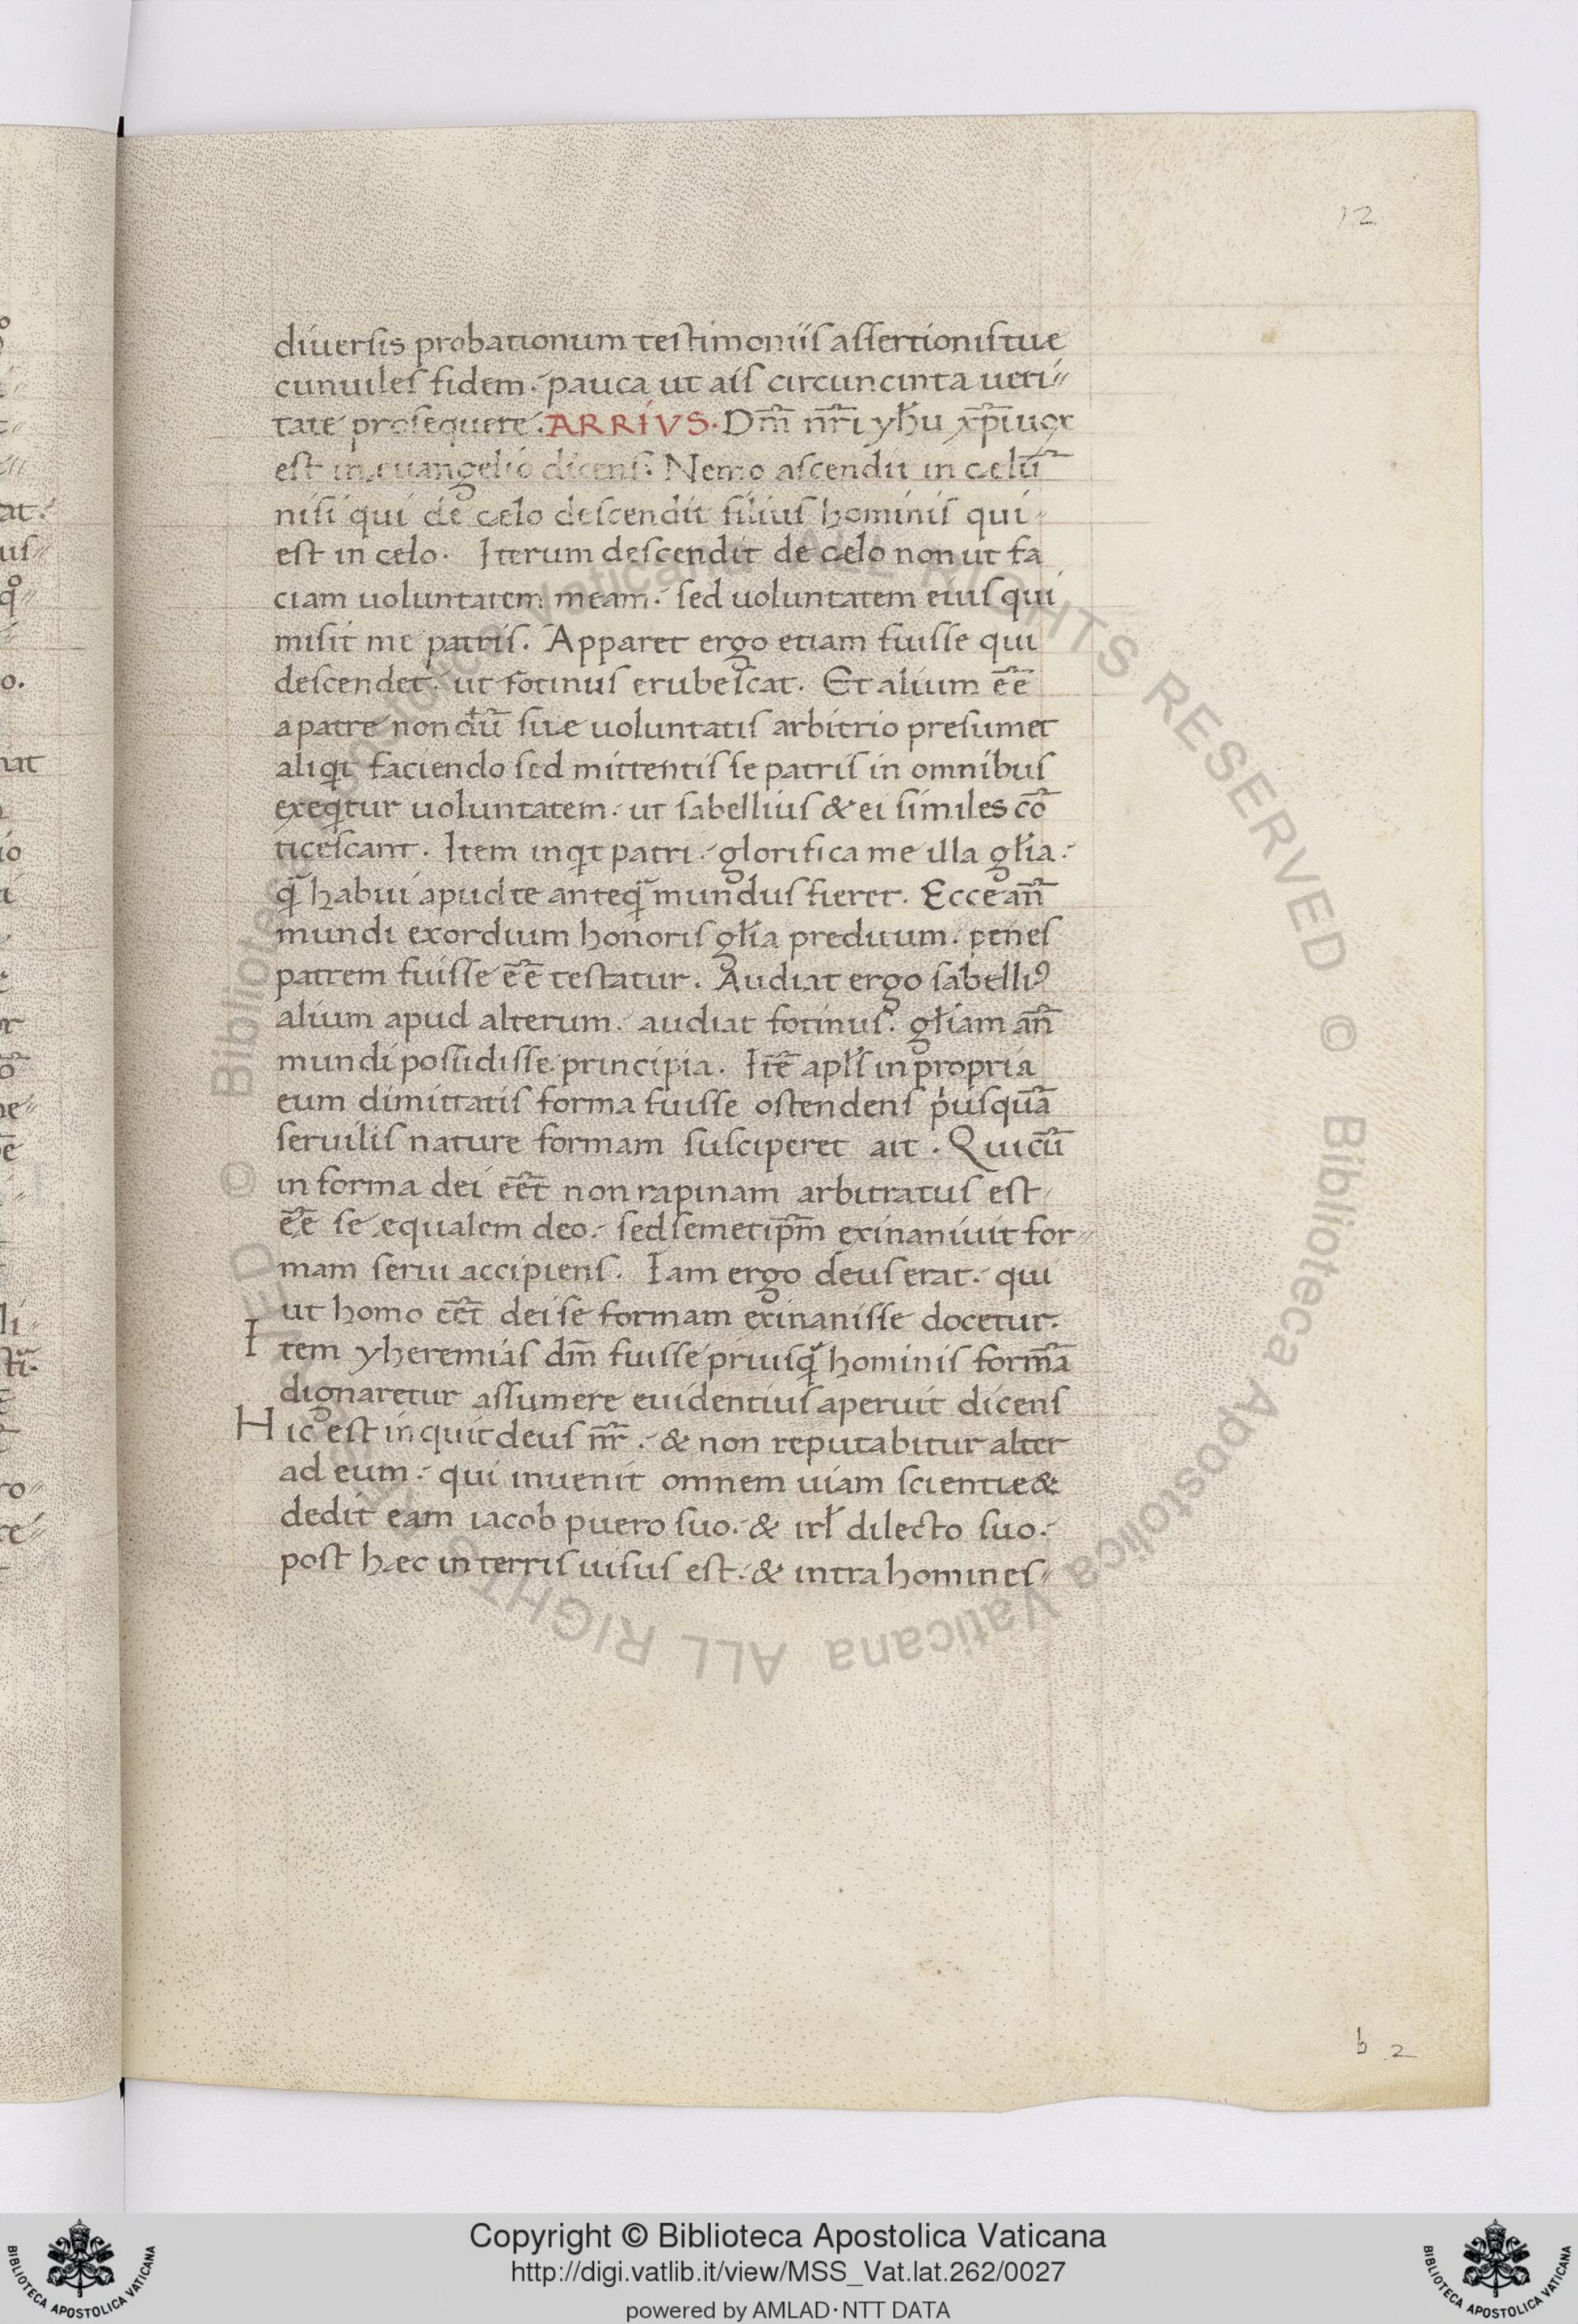 12
diuersis probationum testimoniis assertionis tue
cunuiles fidem. pauca ut ais circuncinta ueri
tate prosequere. ARRIVS. Dm̄ nr̄i yħu xp̄i uox
est in euangelio dicens. Nemo ascendit in cælū
nisi qui de cælo descendit filius hominis qui
est in celo. Iterum descendit de cælo non ut fa
ciam uoluntatem meam. sed uoluntatem eius qui
misit me patris. Apparet ergo etiam fuisse qui
descendet. ut fotinus erubescat. Et alium eē
a patre non dū suæ uoluntatis arbitrio presumet
aliqͥt faciendo sed mittentis se patris in omnibus
exeqͥtur uoluntatem. ut sabellius & ei similes cō
ticescant. Item inqͥt patri. glorifica me illa gƚia.
qͣ̄ habui apud te anteqͣ̄ mundus fieret. Ecce an̄
mundi exordium honoris gƚia preditum. penes
patrem fuisse eē testatur. Audiat ergo sabelliꝰ
alium apud alterum. audiat fotinus. gƚiam an̄
mundi possidisse principia. Itē apƚs in propria
eum dimittatis forma fuisse ostendens pͥusquā
seruilis nature formam susciperet ait. Qui cū
in forma dei eēt non rapinam arbitratus est
eē se equalem deo. sed semetip̄m exinaniuit for
mam serui accipiens. Iam ergo deus erat. qui
ut homo eēt dei se formam exinanisse docetur.
Item yheremias dm̄ fuisse priusqͣ̄ hominis formā
dignaretur assumere euidentius aperuit dicens
Hic est inquit deus nr̄. & non reputabitur alter
ad eum. qui inuenit omnem uiam scientie &
dedit eam iacob puero suo. & irƚ dilecto suo.
post hæc in terris uisus est. & intra homines
b 2
Copyright © Biblioteca Apostolica Vaticana
http://digi.vatlib.it/view/MSS_Vat.lat.262/0027
powered by AMLAD·NTT DATA